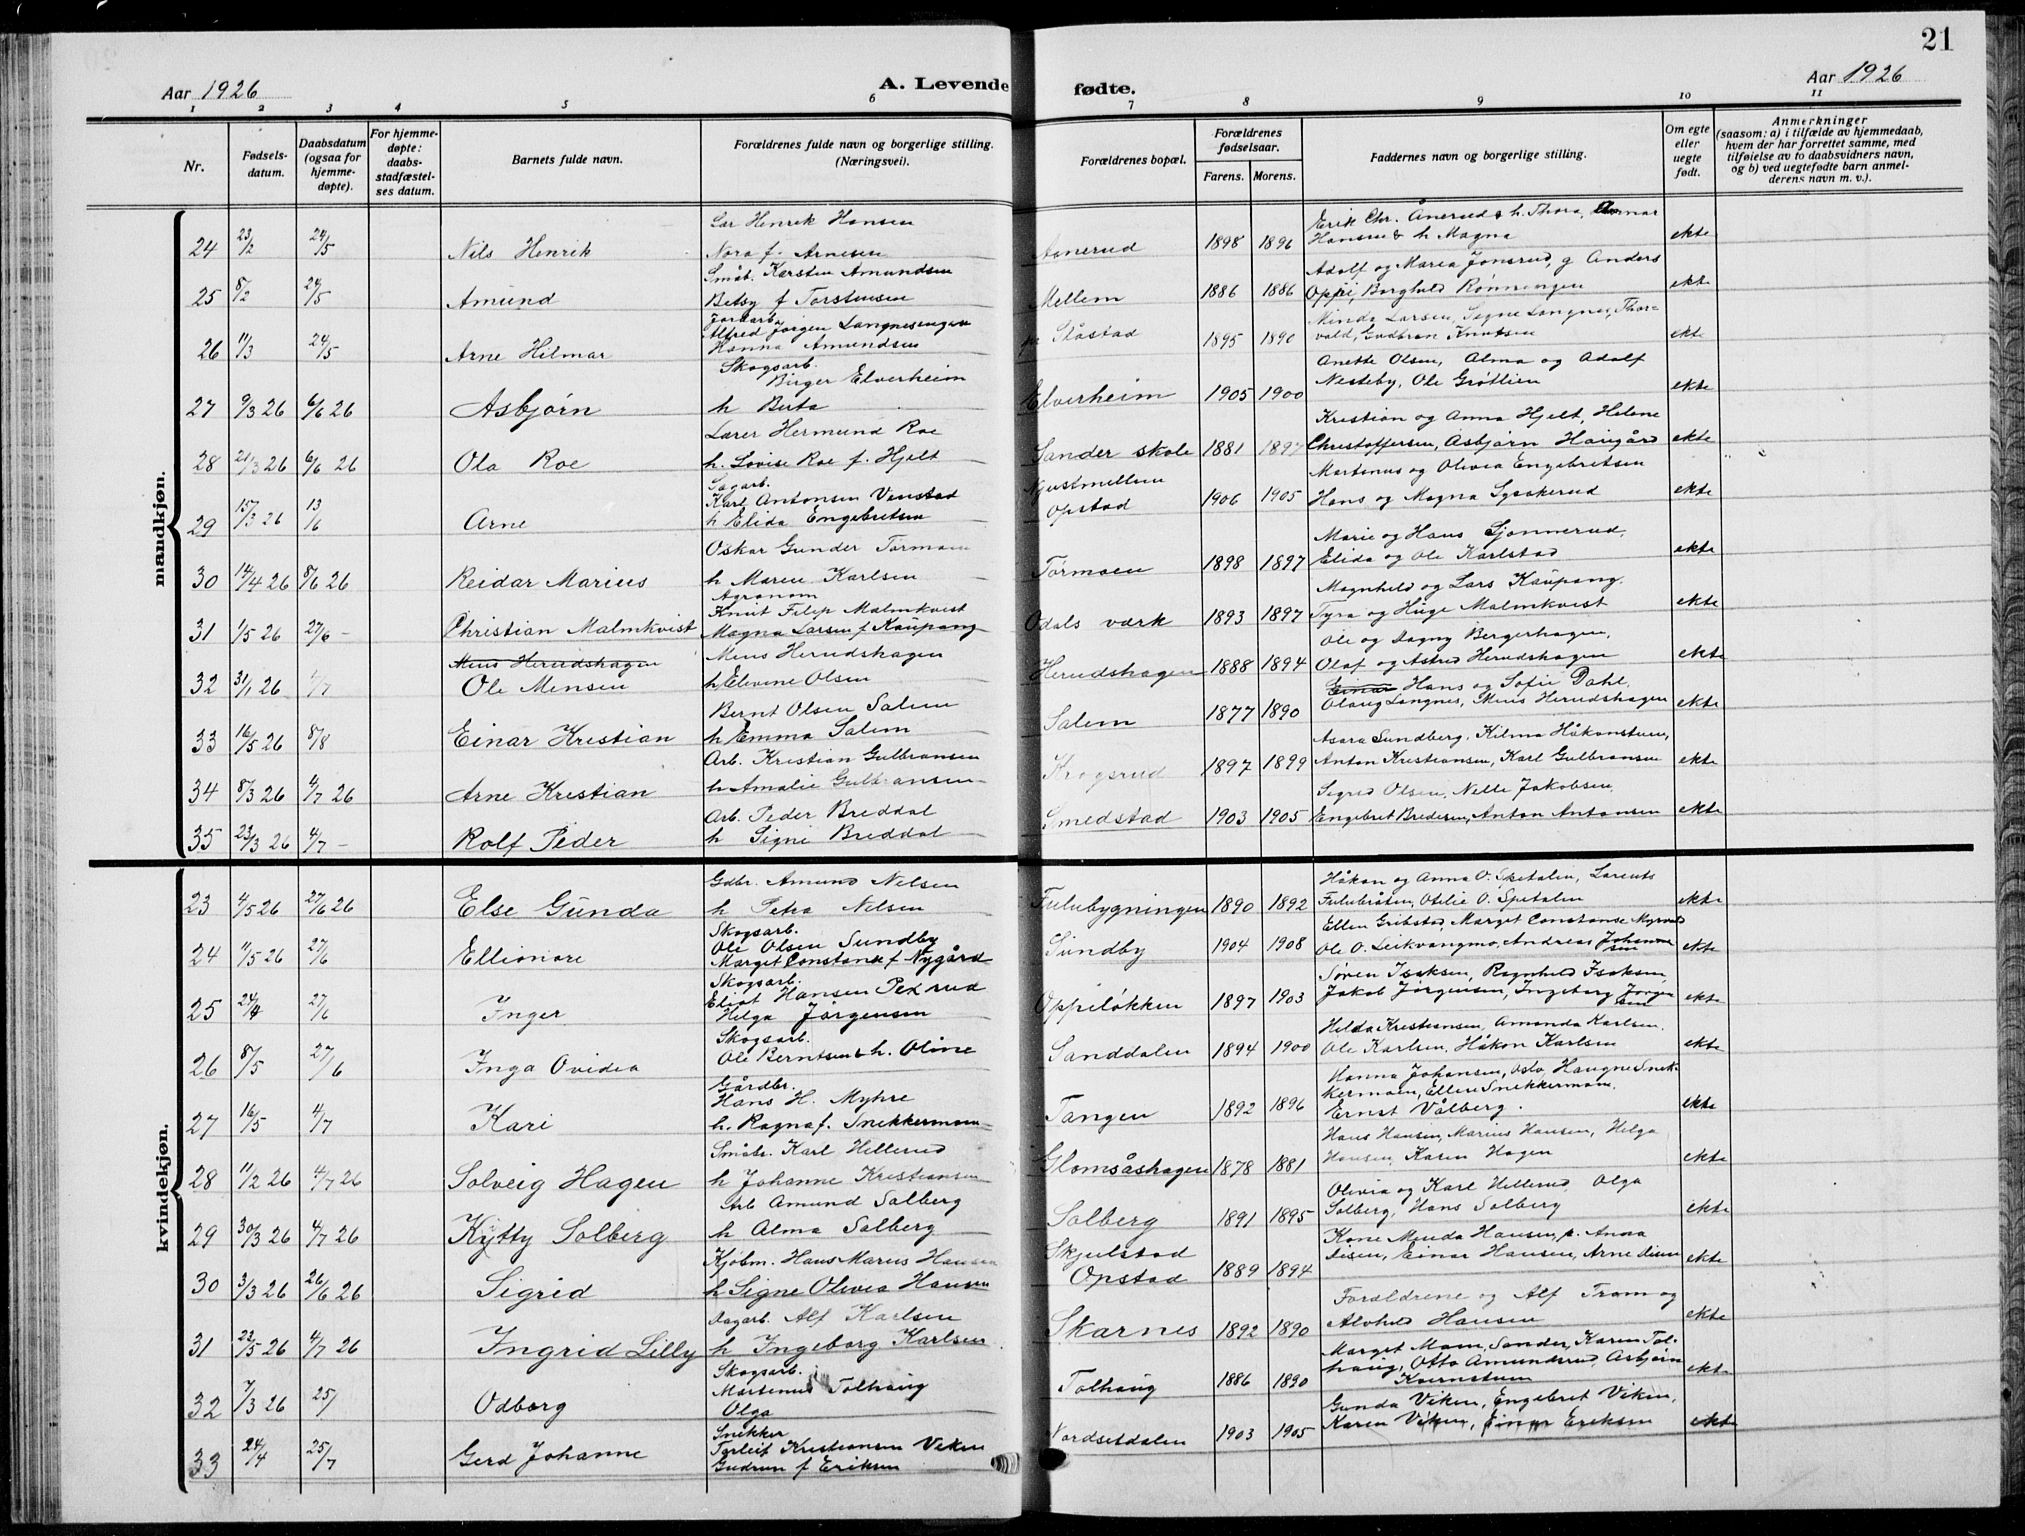 21
Aar 1926
A. Levende fødte.
Aar 1926
1 2 3 4 5 6 7 8 9 10 11
Nr.
Fødsels-
datum.
Daabsdatum
(ogsaa for
hjemme-
døpte).
For hjemme-
døpte:
daabs-
stadfæstel-
ses datum.
Barnets fulde navn.
Forældrenes fulde navn og borgerlige stilling.
(Næringsvei).
Forældrenes bopæl.
Forældrenes
fødselsaar.
Farens. Morens.
Faddernes navn og borgerlige stilling.
Om egte
eller
uegte
født.
Anmerkninger
(saasom: a) i tilfælde av hjemmedaab,
hvem der har forrettet samme, med
tilføielse av to daabsvidners navn,
og b) ved uegtefødte barn anmel-
derens navn m. v.).
mandkjøn.
Lar Henrik Hansen
Erik Chr. Ånerud & h. Thora, Annar
24 23/2 24/5 Nils Henrik Nora f. Arnesen Aanerud 1898 1896 Hansen & h Magna ekte
Småb. Karsten Amundsen
Adolf og Marea Jonsrud, g Anders
25 8/2 24/5 Amund Betsy f Torstensen Mellem 1886 1886 Oppi, Borghild Rønningen ekte
Jordarb.
Alfred Jørgen Langnesengen
Minda Larsen, Signe Langnes, Thor-
26 11/3 24/5 Arne Hilmar Hanna Amundsen Slåstad 1895 1890 vald, Gudbran Knutsen ekte
Skogsarb.
Birger Elverheim
Anette Olsen, Alma og Adolf
27 9/3 26 6/6 26 Asbjørn h Berta Elverheim 1905 1900 Nesteby, Ole Grøtlien ekte
Lærer Hermund Roe
Kristian og Anna Hjelt, Helene
28 21/3 26 6/6 26 Ola Roe h. Lovise Roe f. Hjelt Sander skole 1881 1897 Christoffersen, Asbjørn Haugård ekte
Sagarb.
Karl Antonsen Venstad
Martenus og Olivia Engebretsen
29 15/3 26 13/6 Arne h Elida Engebretsen Opstad 1906 1905 Hans og Magna Sysskerud ekte
Oskar Gunder Tørmoen
Marie og Hans Sjonnerud,
30 14/4 26 8/6 26 Reidar Marius h Maren Karlsen Tørmoen 1898 1897 Elida og Ole Karlstad ekte
Agronom
Knut Filip Malmkvist
Magnhild og Lars Kaupang.
31 1/5 26 27/6 - Christian Malmkvist Magna Larsen f Kaupang Odals værk 1893 1897 Tyra og Huge Malmkvist ekte
Mens Herudshagen
Mens Herudshagen
Ole og Dagny Bergerhagen,
32 31/1 26 4/7 Ole Mensen h Elevine Olsen Herudshagen 1888 1894 Olaf og Astrid Herudshagen ekte
Bernt Olsen Salem
Einar Hans og Sofie Dahl,
33 16/5 26 8/8 Einar Kristian h Emma Salem Salem 1877 1890 Olaug Langnes, Mens Herudshagen ekte
Arb. Kristian Gulbransen
Asora Sundberg, Kilma Håkonstuen,
34 8/3 26 4/7 26 Arne Kristian h Amalie Gulbransen Krogsrud 1897 1899 Anton Kristiansen, Karl Gulbransen ekte
Arb. Peder Breddal
Sigrid Olsen, Nelle Jakobsen,
35 23/3 26 4/7 - Rolf Peder h Signi Breddal Smedstad 1903 1905 Engebret Bredesen, Anton Antonsen ekte
kvindekjøn.
Gdbr. Amund Nelsen
Håkon og Anna O. Spetalen, Lorents
23 4/5 26 27/6 26 Else Gunda h Petra Nelsen Fulubygningen 1890 1892 Fulubråten, Otelie O. Spetalen ekte
Skogsarb.
Ole Olsen Sundby
Ellen Gribstad, Marget Constanse Myrvold
24 11/5 26 27/6 Ellionore Marget Constanse f Nygård Sundby 1904 1908 Ole O. Leikvangmo, Andreas Johannesen ekte
Skogsarb.
Eliot Hansen Pexrud
Søren Isaksen, Ragnhild Isaksen,
25 24/4 27/6 Inger Helga Jørgensen Oppiløkken 1897 1903 Jakob Jørgensen, Ingeborg Jørgensen ekte
Skogsarb.
Helda Kristiansen, Amanda Karlsen,
26 8/5 27/6 Inga Ovidea Ole Berntsen & h. Oline Sanddalen 1894 1900 Ole Karlsen, Håkon Karlsen ekte
Gårdbr.
Hans H. Myhre
Hanna Johansen, Oslo, Haugne Snek-
kermoen, Ellen Snekkermoen,
27 16/5 4/7 Kari h. Ragna f. Snekkermoen Tangen 1892 1896 Ernst Vålberg. ekte
Småbr. Karl Hellerud
Hans Hansen, Marius Hansen, Helga
28 11/2 26 4/7 26 Solveig Hagen h Johanne Kristiansen Glomsåshagen 1878 1881 Hansen, Karen Hagen ekte
Arb Amund Solberg
Olivia og Karl Hellerud, Olga
29 30/3 26 4/7 26 Kytty Solberg h Alma Solberg Solberg 1891 1895 Solberg, Hans Solberg ekte
Kjøbm. Hans Marius Hansen
Skjulstad
Kone Menda Hansen, p. Anna
30 3/3 26 26/6 26 Sigrid h Signe Olivia Hansen Opstad 1889 1894 disen, Einar Hansen, Arne disen ekte
Dagarb. Alf Karlsen
Forældrene og Alf Tram og
31 23/5 26 4/7 26 Ingrid Lilly h Ingeborg Karlsen Skarnes 1892 1890 Alvhild Hansen ekte
Skogsarb.
Martenus Tolhaug
Marget Moen, Sander, Karen Tol-
haug, Otto Amundsrud, Asbjørn
32 7/3 26 25/ Odborg Olga Tolhaug 1886 1890 Kvernstuen ekte
Snikker
Torleif Kristiansen Viken
Gunda Viken, Engebret Viken,
33 24/4 25/7 Gerd Johanne Gudrun f Eriksen Nordsetdalen 1903 1905 Karen Viken, Einar Eriksen ekte